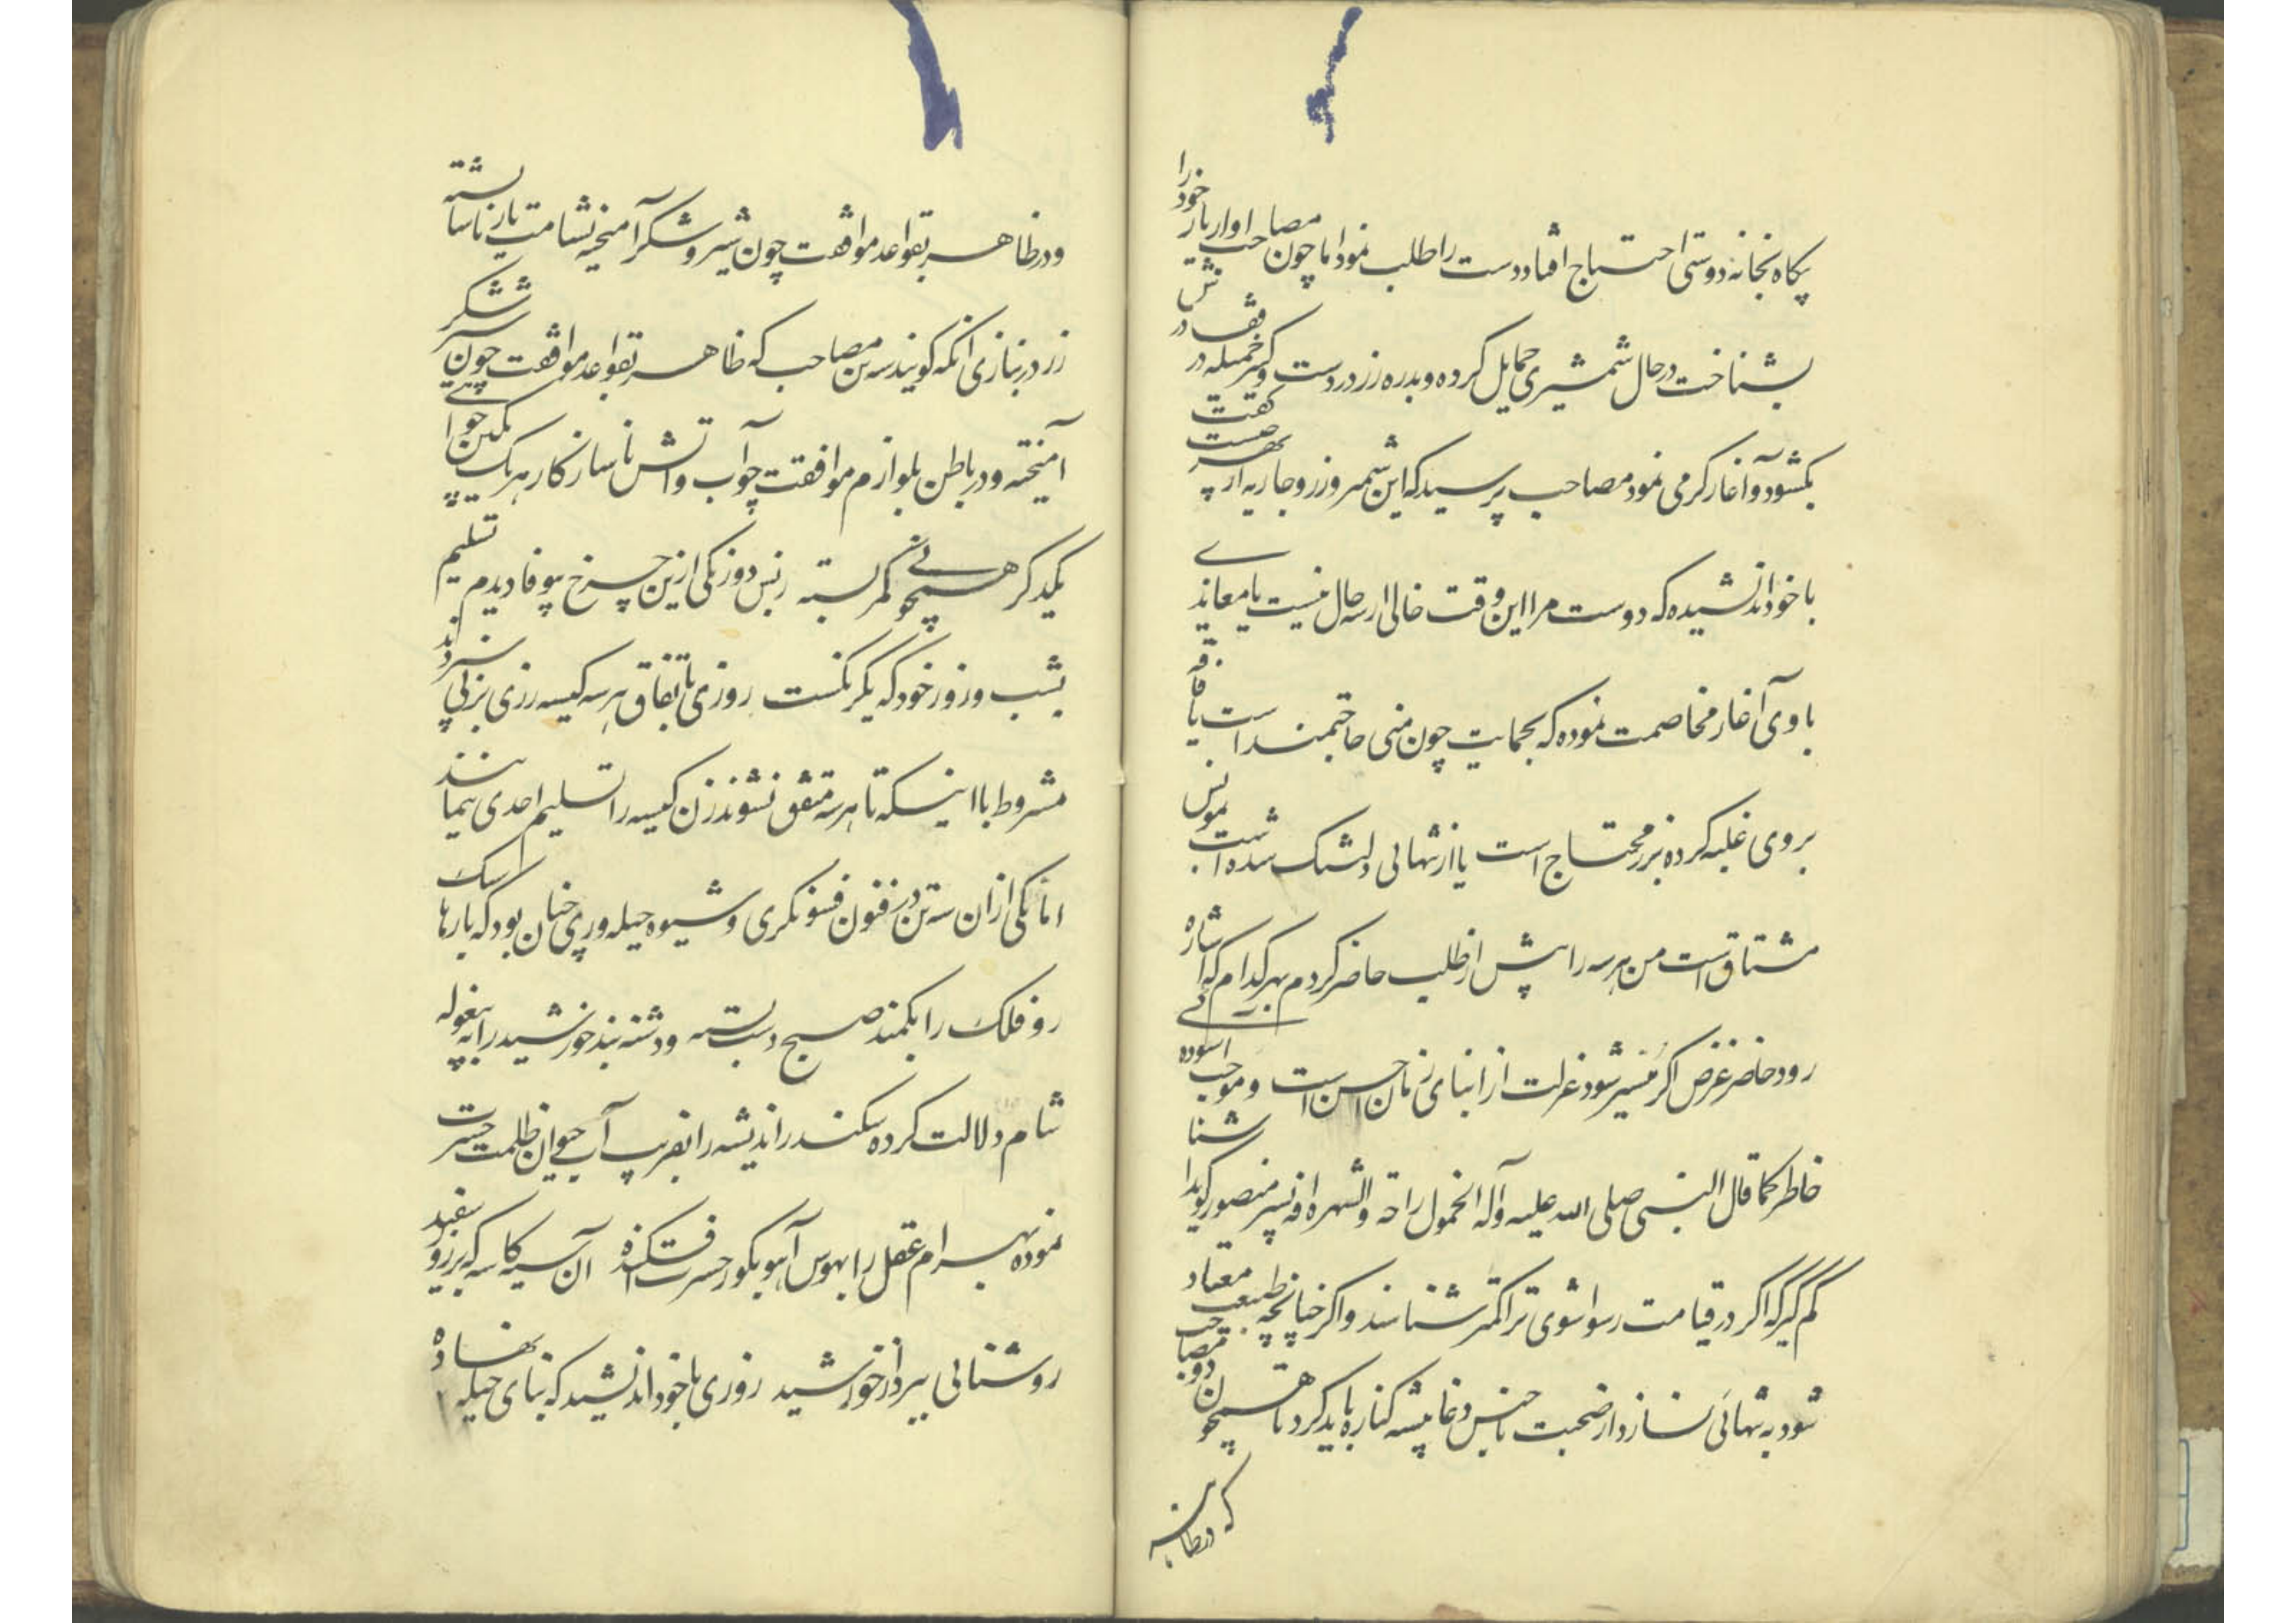 پکاه بخانه دوستی احتیاج افتاد دوست را طلب نمود اما چون مصاحب اواز یار خود را
بشناخت در حال شمشیری حمایل کرده و بدره زر در دست و کنیز جمیله در
بکشود و آغاز کرمی نمود مصاحب پرسید که این شمشیر و زر و جاریه از بهر چیست گفت
با خود اندیشیده که دوست مرا این وقت خالی از سه حال نیست یا معاندی
با وی آغاز مخاصمت نموده که بحمایت چون منی حاجتمند است یا فاقه
بر وی غلبه کرده بزر محتاج است یا از تنهائی دلتنک شده است بمونس
مشتاق است من هر سه را پیش از طلب حاضر کردم بهر کدام که اشاره
رود حاضر غرض اکر میسر شود عزلت از ابنای زمان احسن است و موجب اسوده
خاطر کما قال النبی صلی الله علیه وآله الخمول راحة والشهرة آفة پسر منصور کوید
کم کیر که اکر در قیامت رسوا شوی ترا کمتر شناسند و اکر چنانچه طبیعت معتاد
شود به تنهائی نسازد از صحبت ناجنس دغا پیشه کناره باید کرد تا همچون دو مصاحب
که در ظاهر
و در ظاهر بقواعد موافقت چون شیر و شکر آمیخته بشامت یار ناشایسته
زر در بازی انکه کویند سه تن مصاحب که ظاهر بقواعد موافقت چون شیر شکر
آمیخته و در باطن بلوازم موافقت چو آب و آتش ناسازکار هر یک
یکدیکر همچو نی کمر بسته زبس دو رنکی ازین چرخ بیوفا دیدم تسلیم
بشب و روز خود که یکرنکست روزی باتفاق هر سه کیسه زری بزنی سپردند
مشروط با اینکه تا هر سه متفق نشوند زن کیسه را تسلیم احدی ننماید
اما یکی از ان سه تن در فنون فسونکری و شیوه حیله وری چنان بود که بارها
رو فلک را بکمند صبح دست بسته و دشنه بند خورشید را به بیغوله
شام دلالت کرده سکندر اندیشه را بفریب آب حیوان ظلمت حسرت
نموده بهرام عقل را بهوس آهو بکور حسرت افکنده آن سیه کاسه که بر زو سفید
روشنائی ببرد از خورشید روزی با خود اندیشید که بنای حیله نهاده